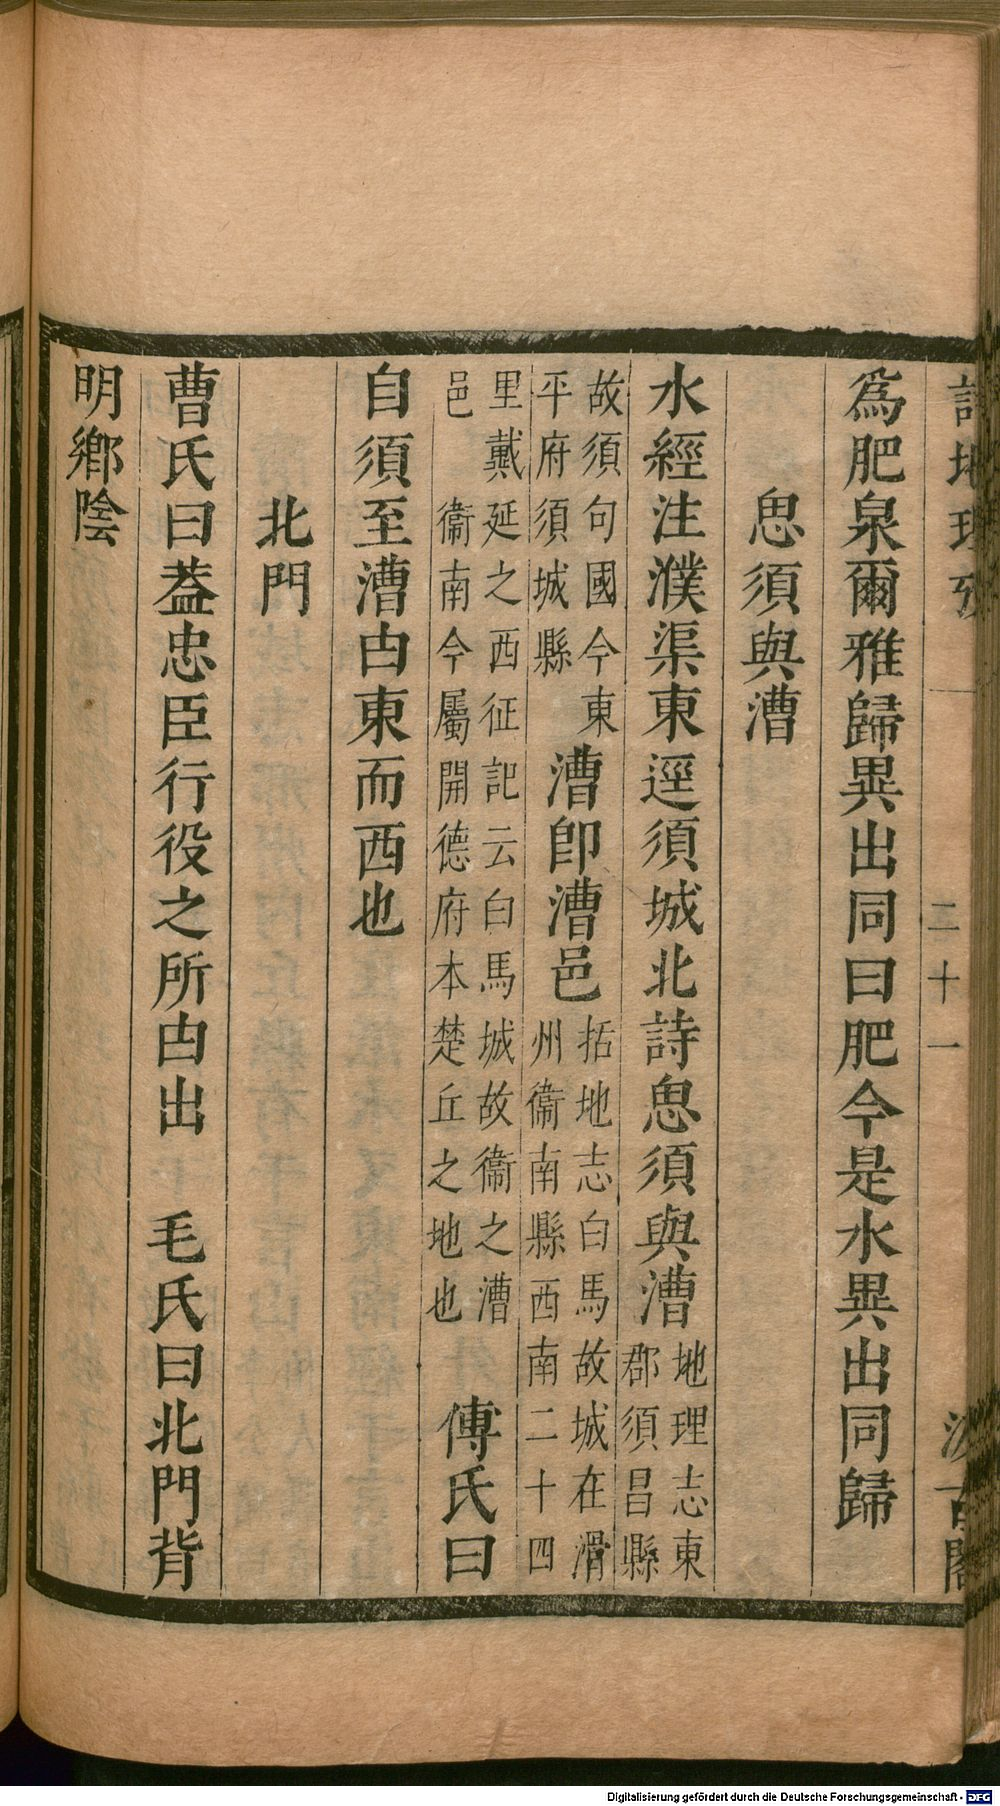 詩地理攷 二十一 汲古閣
爲肥泉爾雅歸異出同曰肥今是水異出同歸
思須與漕
水經注濮渠東逕須城北詩思須與漕地理志東郡須昌縣
故須句國今東平府須城縣漕卽漕邑括地志白馬故城在滑州衞南縣西南二十四
里戴延之西征記云白馬城故衞之漕邑 衞南今屬開德府本楚丘之地也 傅氏曰
自須至漕由東而西也
北門
曹氏曰葢忠臣行役之所由出 毛氏曰北門背
明鄉陰
Digitalisierung gefördert durch die Deutsche Forschungsgemeinschaft - DFG